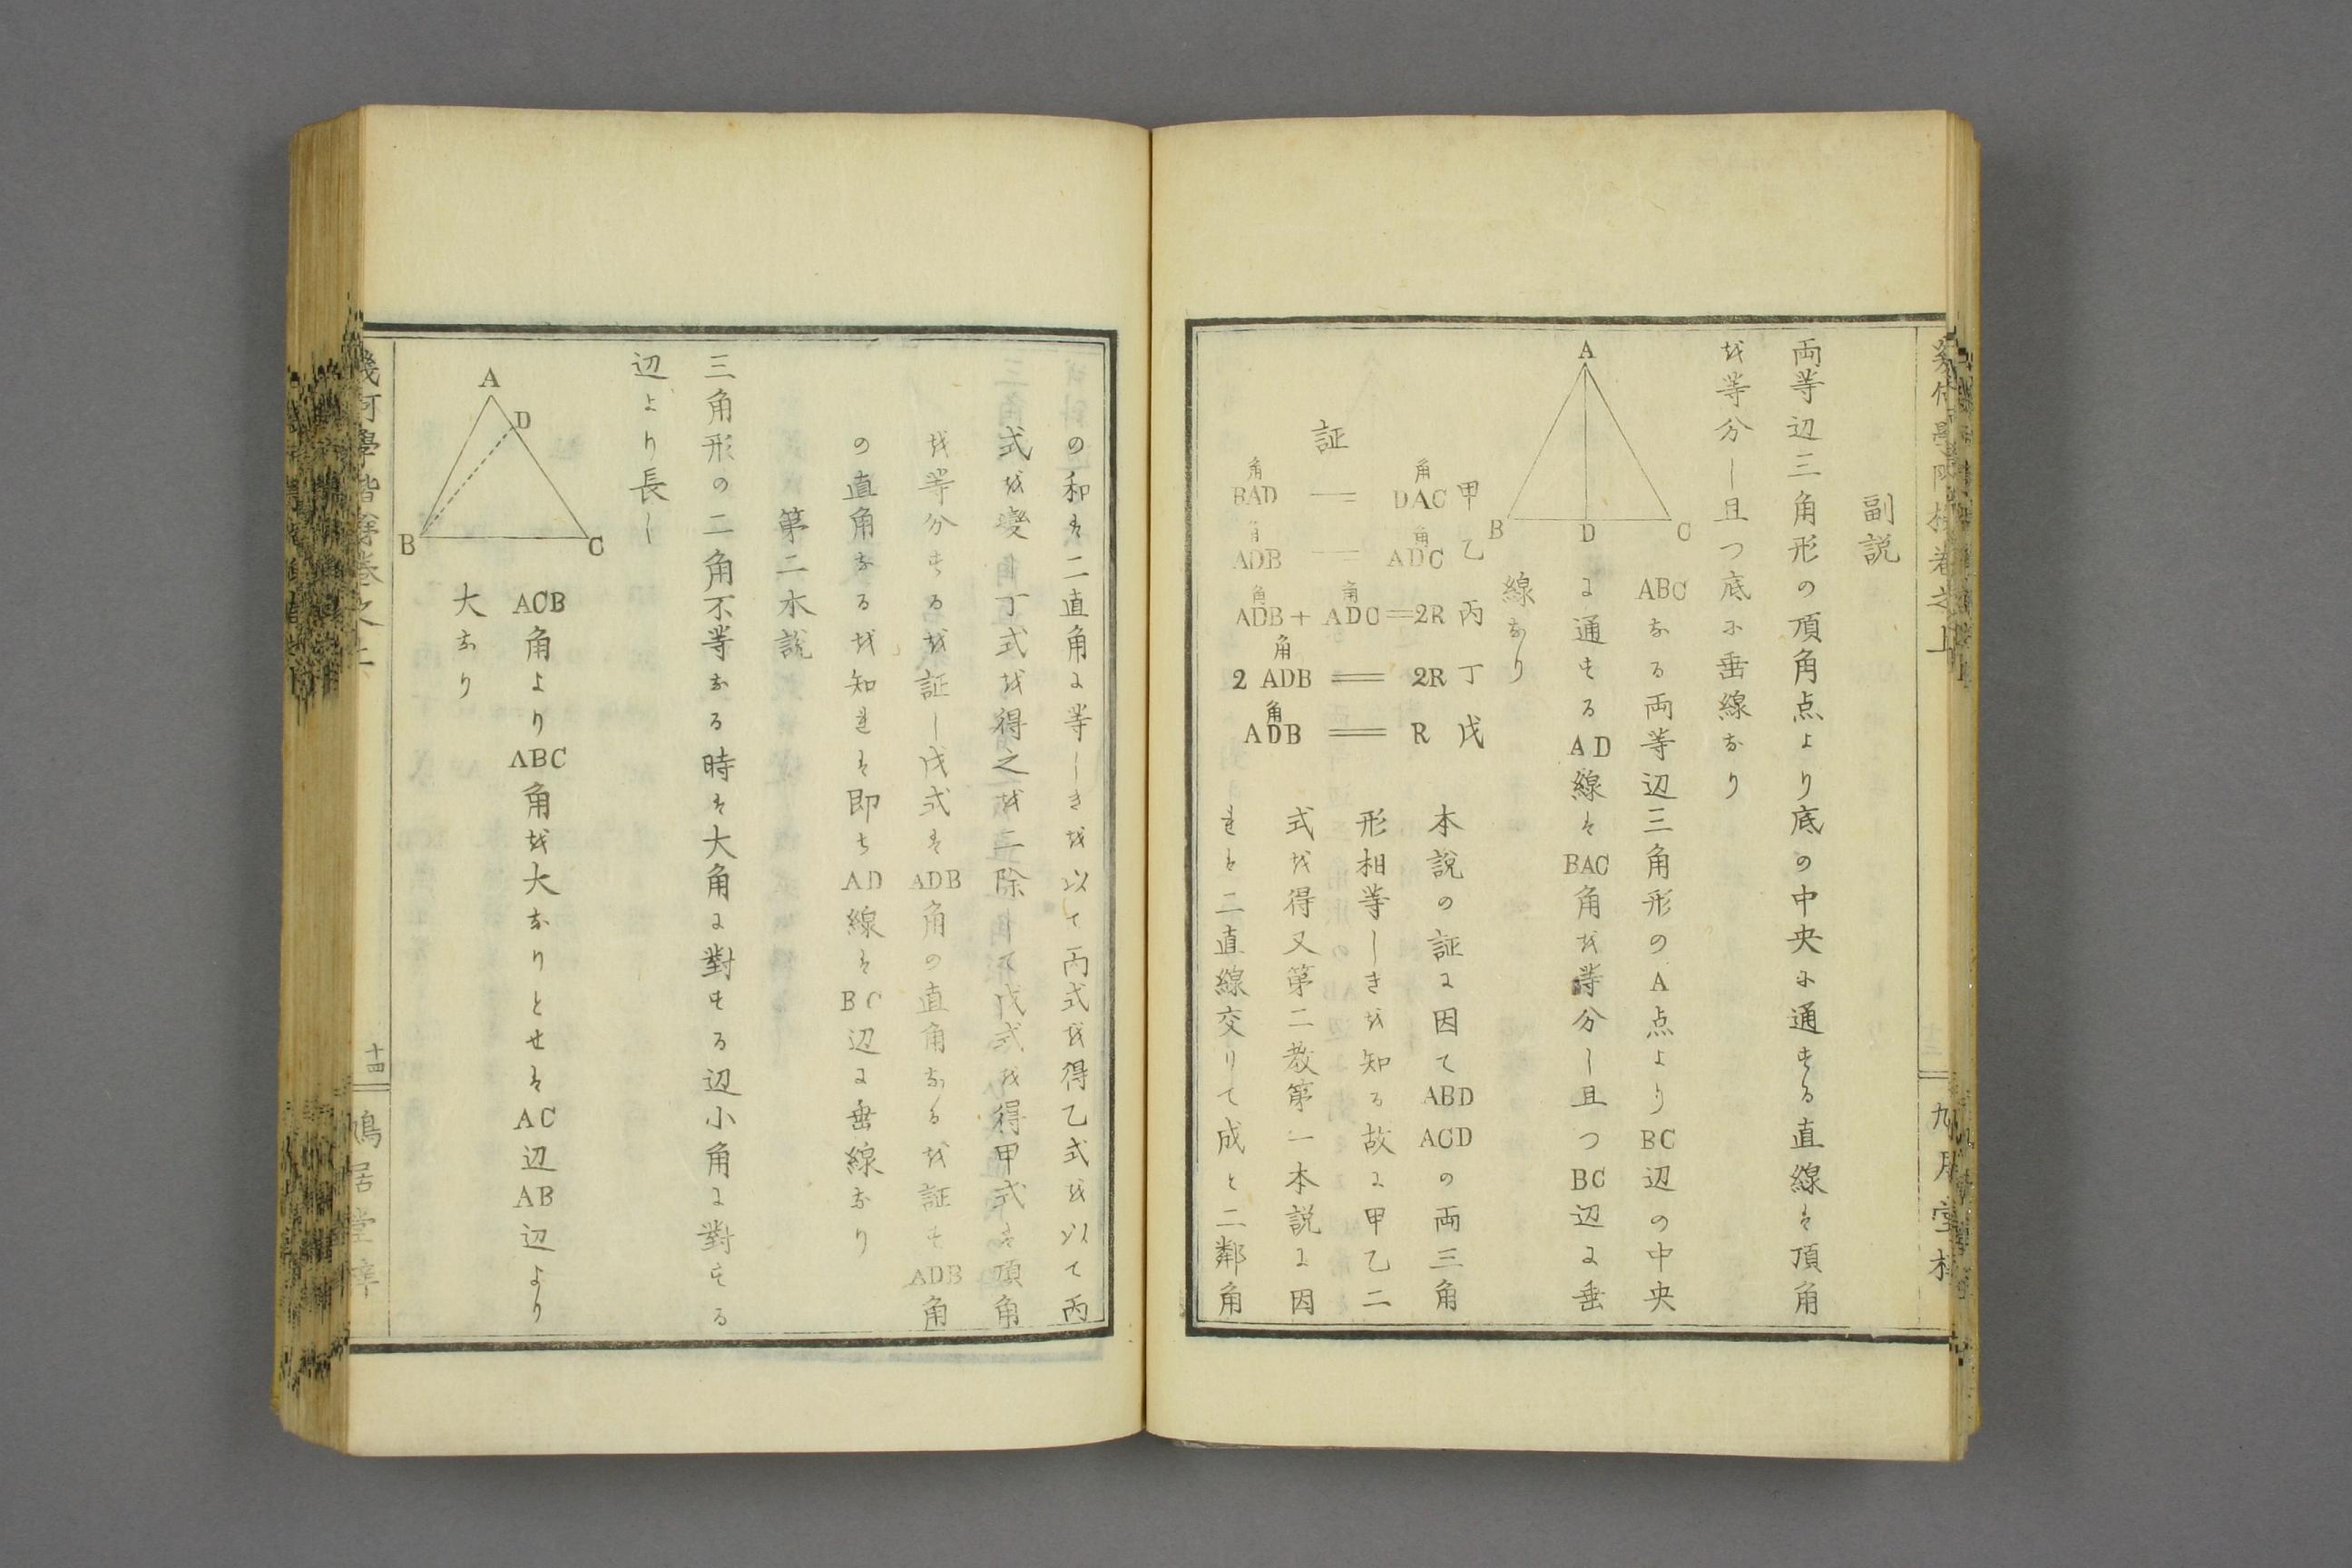 副説
両等辺三角形の頂角点より底の中央に通ずる直線は頂角
を等分し且つ底に垂線なり
A
B
D
C
ABCなる両等辺三角形のA点よりBC辺の中央
に通ずるAD線はBAC角を等分し且つBC辺に垂
線なり
証
角BAD = 角DAC 甲
角ADB = 角ADC 乙
角ADB + 角ADC = 2R 丙
2 角ADB = 2R 丁
角ADB = R 戊
本説の証に因てABD ACDの両三角
形相等しきを知る故に甲乙二
式を得又第二教第一本説に因
れは二直線交りて成と二鄰角
の和は二直角に等しきを以て丙式を得乙式を以て丙
式を変丁式を得之を二除して戊式を得甲式は頂角
を等分せるを証し戊式はADB角の直角なるを証すADB角
の直角なるを知れは即ちAD線はBC辺に垂線なり
第二本説
三角形の二角不等なる時は大角に對する辺小角に對する
辺より長し
A
D
B
C
ACB角よりABC角を大なりとせはAC辺AB辺より
大なり
幾何學階梯巻之上
十四
鳩居堂梓